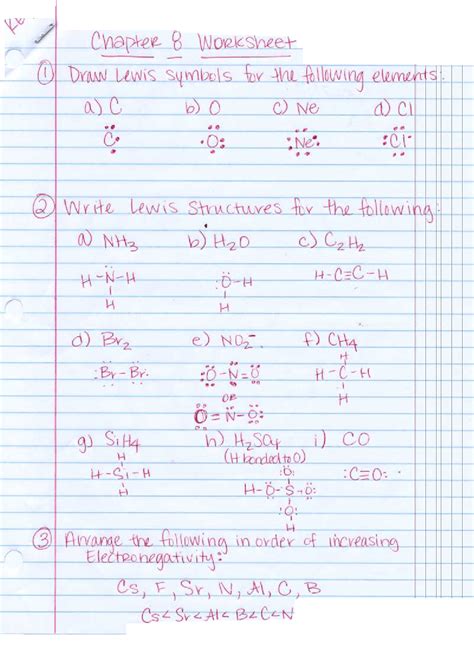 Chapter 8 Worksheet
① Draw Lewis symbols for the following elements:
a) C b) O c) Ne d) Cl
C O Ne Cl
② Write Lewis Structures for the following:
a) NH3 b) H2O c) C2H2
H-N-H
H
O-H
H
H-C≡C-H
d) Br2 e) NO2- f) CH4
Br-Br
O-N=O
OR
O=N-O
H
H-C-H
H
g) SiH4 h) H2SO4 i) CO
(H bonded to O)
H
H-Si-H
H
O
H-O-S-O
O
H
:C≡O:
③ Arrange the following in order of increasing
Electronegativity:
Cs, F, Sr, N, Al, C, B
Cs<Sr<Al<B<C<N